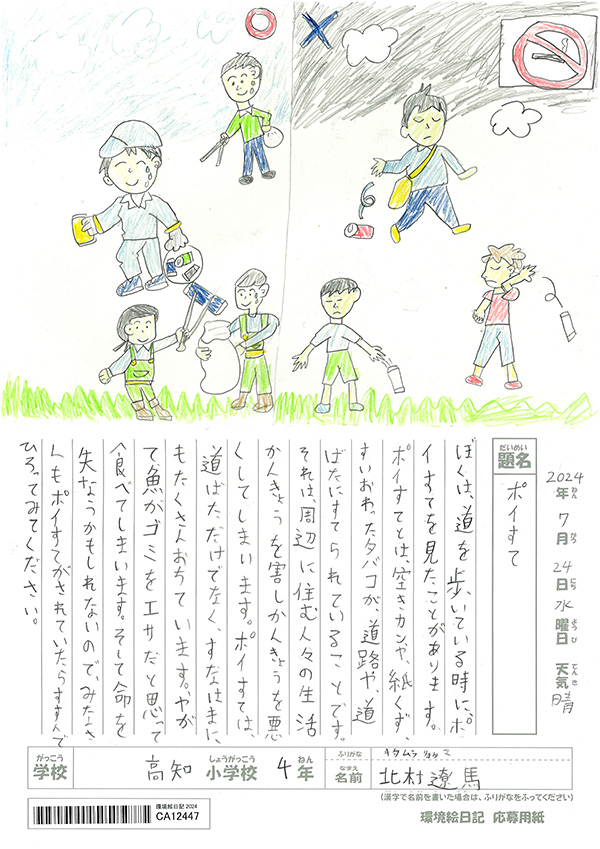 2024年7月24日水曜日 天気 晴
だいめい
題名 ポイすて
ぼくは、道を歩いている時に、ポ
イすてを見たことがあります。
ポイすてとは、空きカンや、紙くず、
すいおわったタバコが、道路や、道
ばたにすてられていることです。
それは、周辺に住む人々の生活
かんきょうを害しかんきょうを悪
くしてしまいます。ポイすては、
道ばただけでなく、すなはまに
もたくさんおちています。やが
て魚がゴミをエサだと思って
食べてしまいます。そして命を
失なうかもしれないので、みなさ
んもポイすてがされていたらすすんで
ひろってみてください。
がっこう しょうがっこう ねん
学校 高知 小学校 4年
ふりがな キタムラ リョウマ
なまえ
名前 北村遼馬
(漢字で名前を書いた場合は、ふりがなをふってください)
環境絵日記 2024
CA12447
環境絵日記 応募用紙